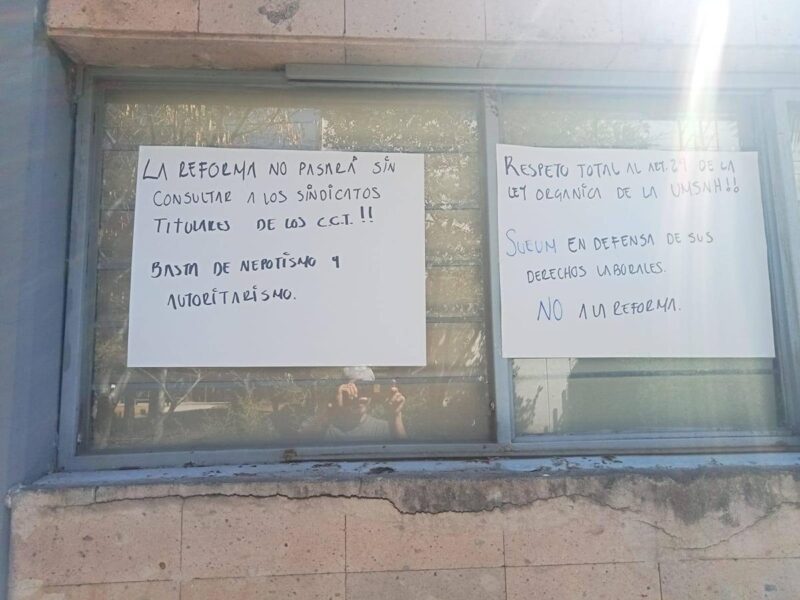 LA REFORMA NO PASARÁ SIN
CONSULTAR A LOS SINDICATOS
TITULARES DE LOS C.C.T. !!
BASTA DE NEPOTISMO Y
AUTORITARISMO.
RESPETO TOTAL AL ART. 29 DE LA
LEY ORGANICA DE LA UMSNH!!
SUEUM EN DEFENSA DE SUS
DERECHOS LABORALES.
NO A LA REFORMA.